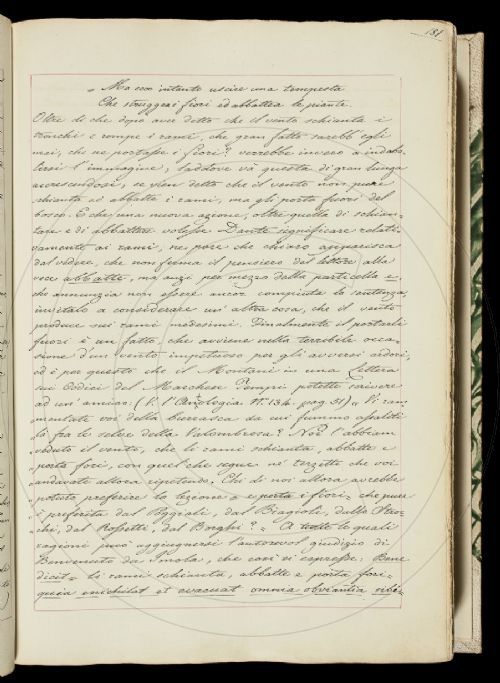 181
„ Ma ecco intanto uscire una tempesta
Che struggea i fiori ed abbattea le piante.
Oltre di che dopo aver detto che il vento schianta i
tronchi e rompe i rami, che gran fatto sarebb'egli
mai, che ne portasse i fiori? verrebbe invero a indebo-
lirsi l'immagine, laddove và questa di gran lunga
accrescendosi, se vien detto che il vento non pure
schianta ed abbatte i rami, ma gli porta fuori del
bosco. E che una nuova azione, oltre quella di schian-
tare e di abbattere volesse Dante significare relati-
vamente ai rami, ne pare che chiaro apparisca
dal vedere, che non ferma il pensiero del lettore alla
voce abbatte, ma anzi per mezzo della particella e,
che annunzia non essere ancor compiuta la sentenza,
invitalo a considerare un'altra cosa, che il vento
produce sui rami medesimi. Finalmente il portarli
fuori è un fatto, che avviene nella terribile occa-
sione d'un vento impetuoso per gli avversi ardori,
ed è per questo che il Montani in una Lettera
sui Codici del Marchese Tempi potette scrivere
ad un'amico: (V. l'Antologia N.° 134 pag. 31) „ Vi ram-
mentate voi della burrasca da cui fummo assaliti
là fra le selve della Vallombrosa? Noi l'abbiam
veduto il vento, che li rami schianta, abbatte e
porta fori, con quel che segue ne' terzetti che voi
andavate allora ripetendo. Chi di noi allora avrebbe
potuto preferire la lezione e porta i fiori, che pur
è preferita dal Poggiali, dal Biagioli, dallo
chi, dal Rossetti, dal Borghi? „ A tutte le quali
ragioni può aggiugnersi l'autorevol giudizio di
Benvenuto da Imola, che così si espresse: Bene
dicit = li rami schianta, abbatte e porta fori =
quia annichilat et evacuat omnia obviantia sibi